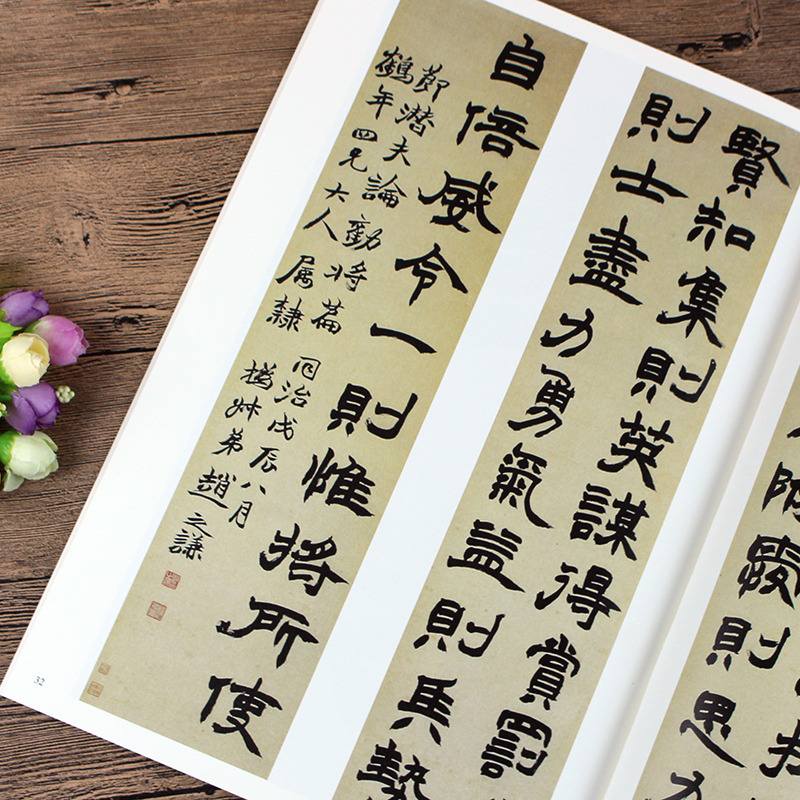 附愛則思力
賢知集則英謀得賞罰
則士盡力勇氣益則兵勢
自倍威令一則惟將所使
節潛夫論勸將篇
鶴年四兄大人屬隸
同治戊辰八月
撝叔弟趙之謙
32